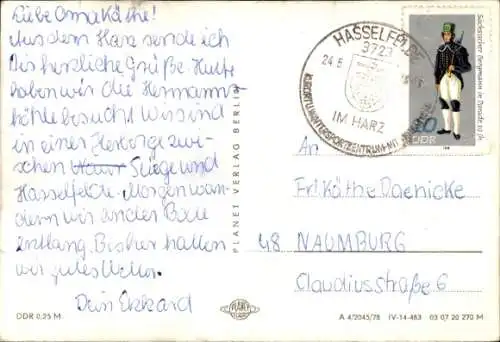 Liebe Oma Käthe!
Aus dem Harz sende ich
Dir herzliche Grüße. Heute
haben wir die Hermanns-
höhle besucht. Wir sind
in einer Herberge zwi-
schen Stiege und
Hasselfelde. Morgen wan-
dern wir an der Bode
entlang. Bisher hatten
wir gutes Wetter.
Dein Ekkard
DDR 0,25 M
PLANET VERLAG BERLIN
PLANET
A 4/2045/78 IV-14-483 03 07 20 270 M
HASSELFELDE
3723
24.5
IM HARZ
Sächsischer Bergmann in Parade
20
DDR
An
Fr. Käthe Daenicke
48 NAUMBURG
Claudiusstraße 6